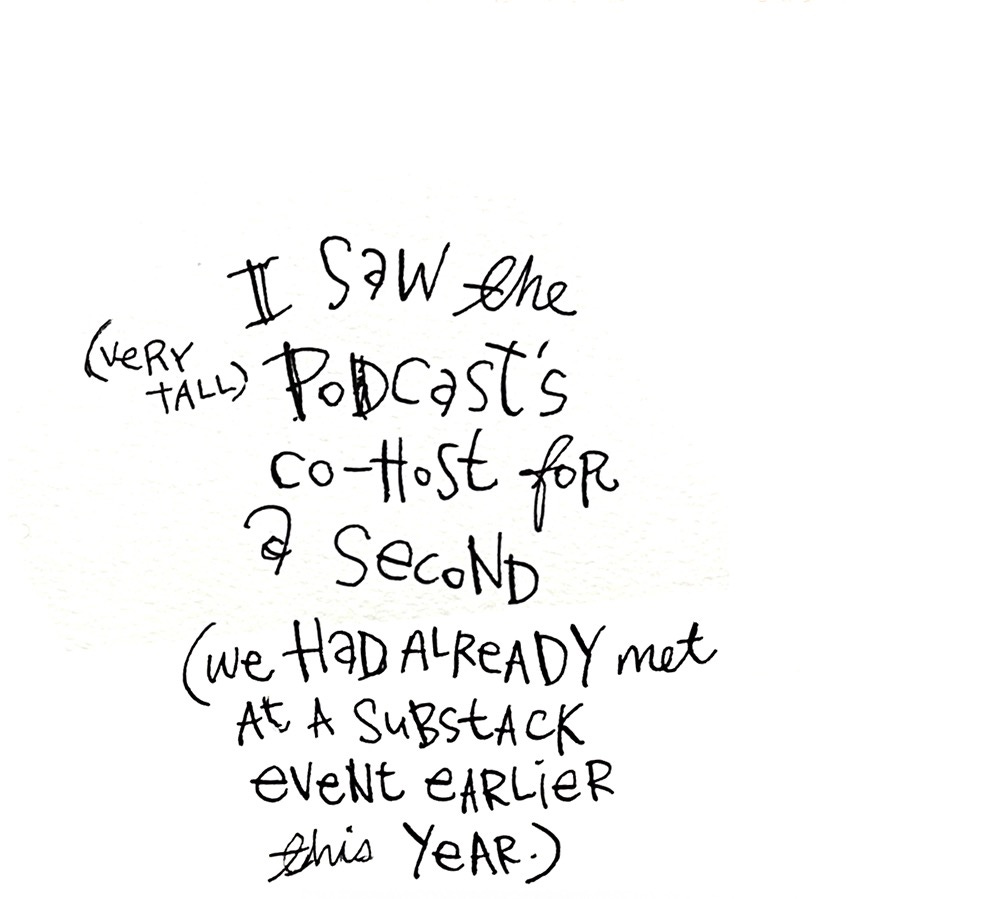 I SaW the
(VeRY
TALL) PoDCasT's
co-HoSt foR
a SecoND
(we HaD ALReADY met
At A SuBStACK
eVeNt eARLieR
this YeAR.)